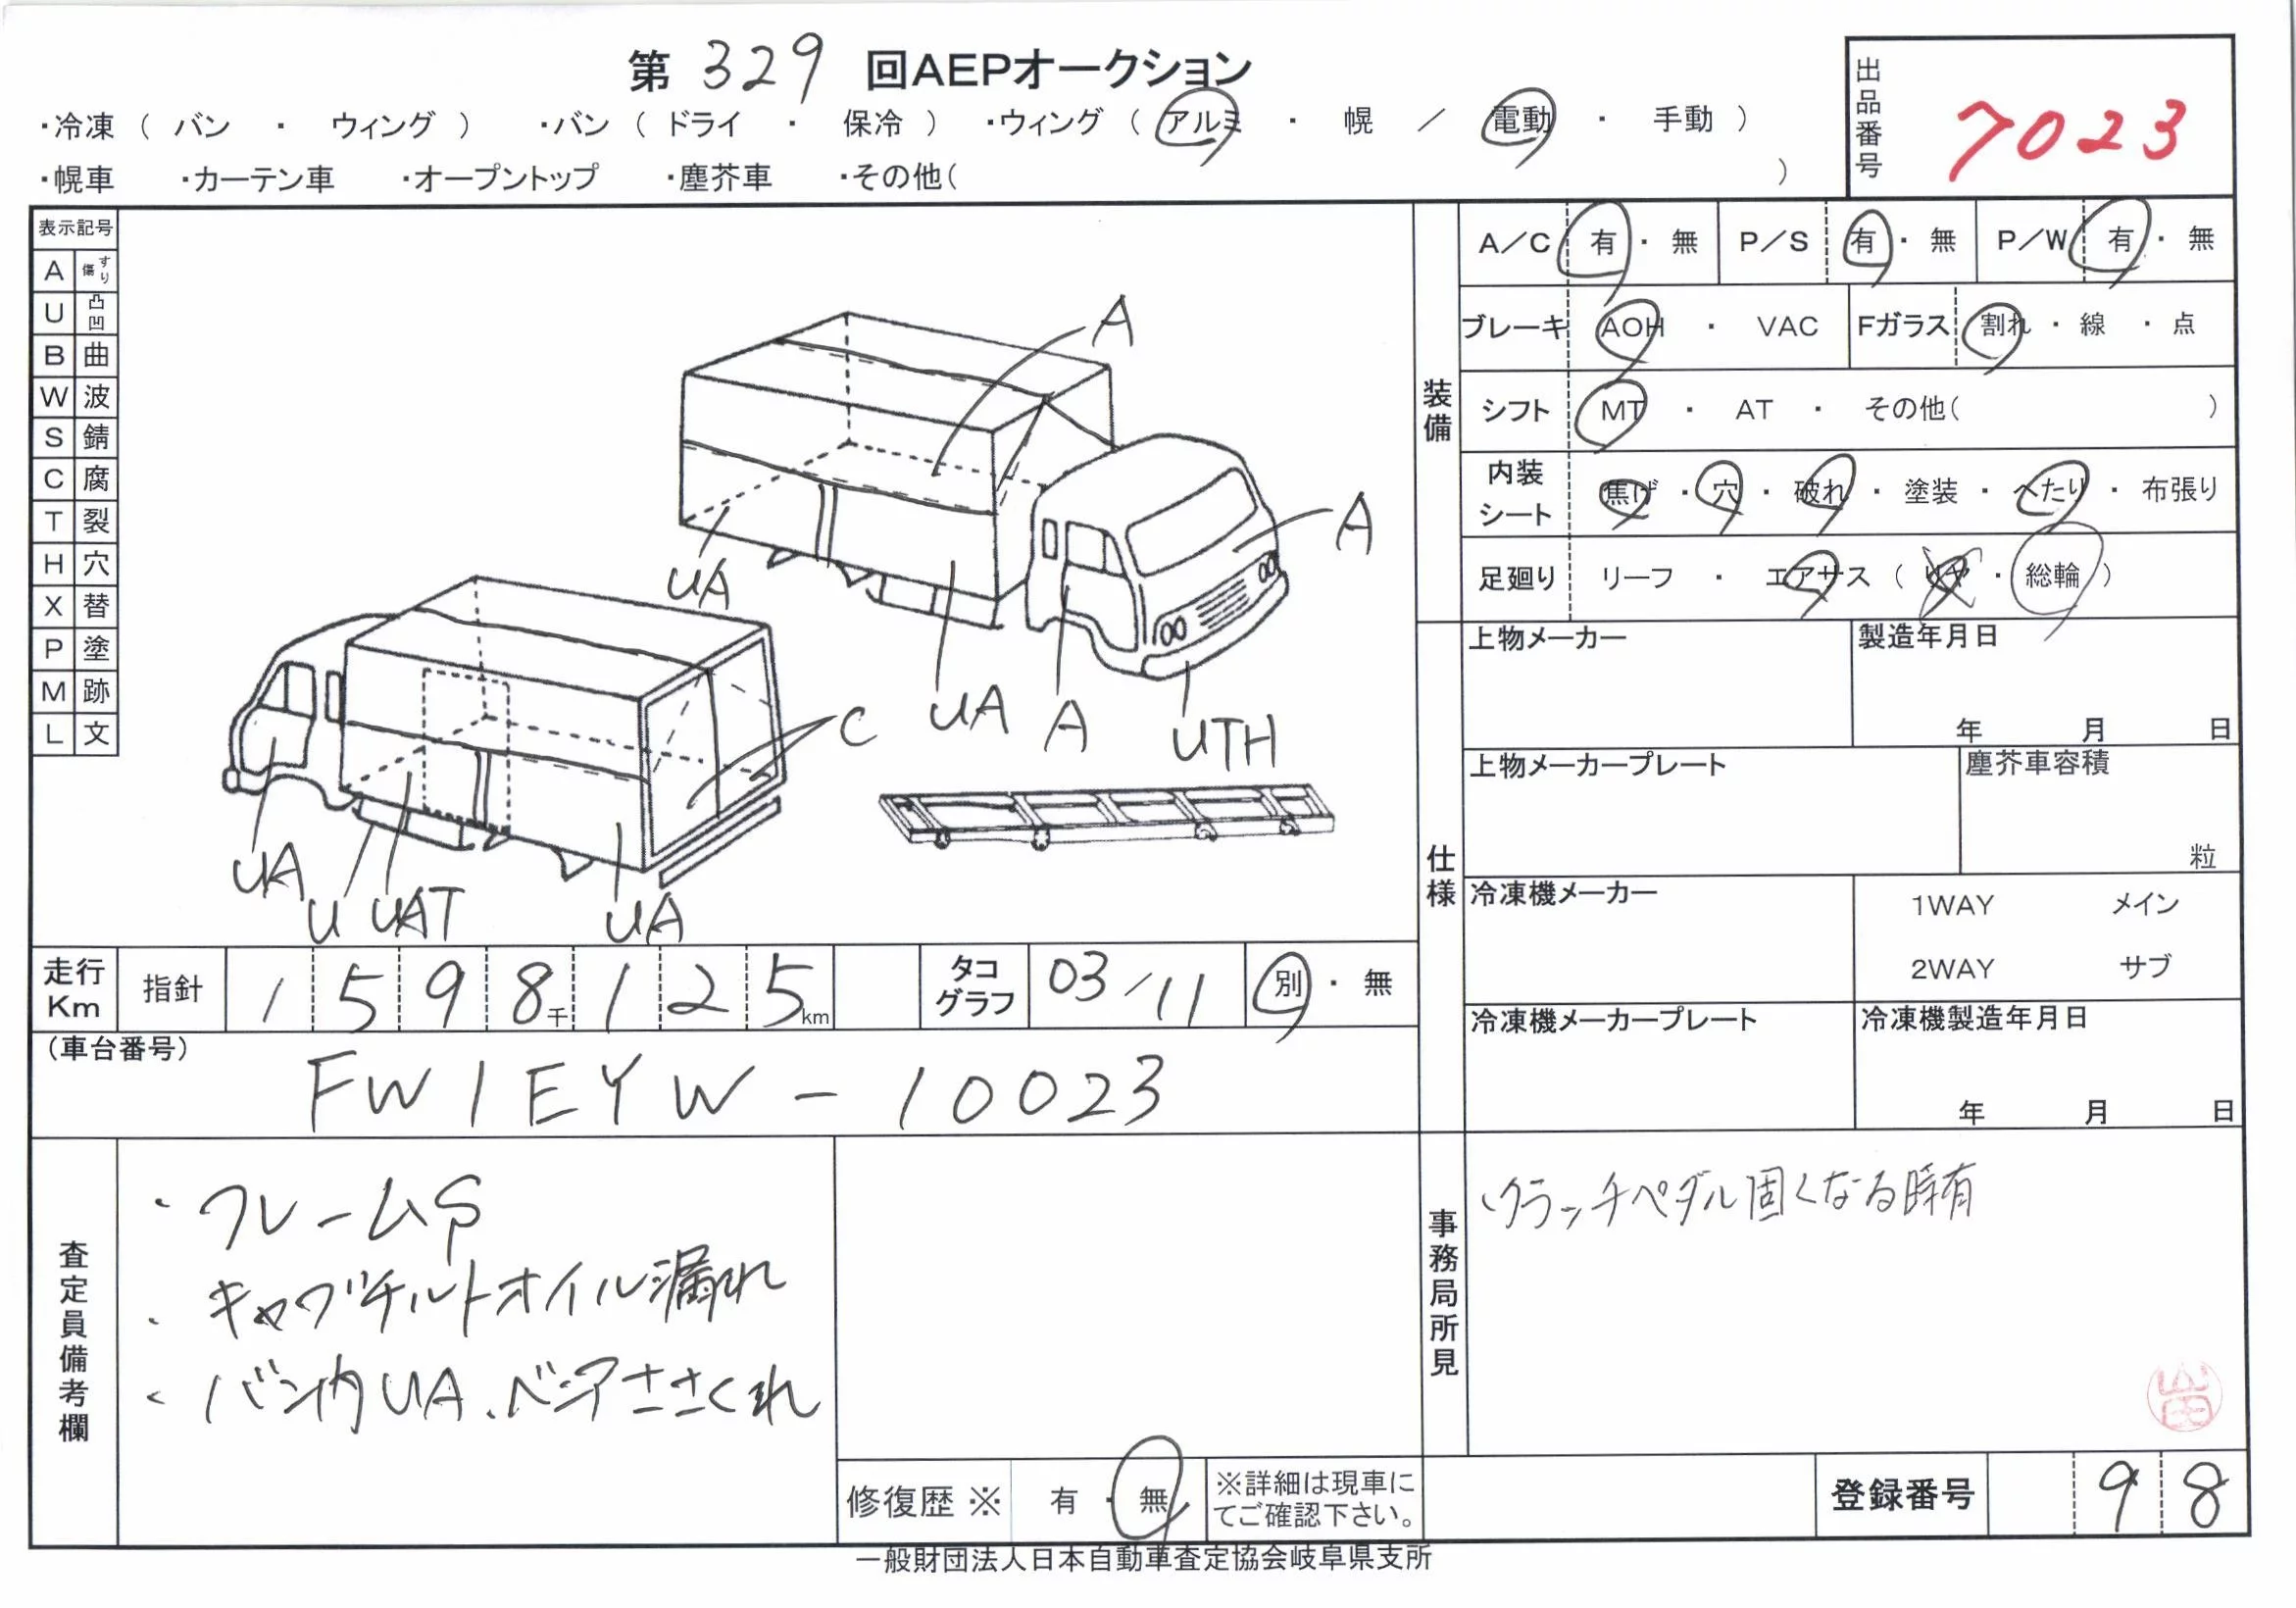 第 329 回AEPオークション
・冷凍（ バン ・ ウィング ） ・バン（ ドライ ・ 保冷 ） ・ウィング（ アルミ ・ 幌 ／ 電動 ・ 手動 ）
・幌車 ・カーテン車 ・オープントップ ・塵芥車 ・その他（ ）
出品番号 7023
表示記号
A すり傷
U 凸凹
B 曲
W 波
S 錆
C 腐
T 裂
H 穴
X 替
P 塗
M 跡
L 文
A
A
UA
UA
A
UTH
C
UA
U
UAT
UA
装備
A／C 有 ・ 無 P／S 有 ・ 無 P／W 有 ・ 無
ブレーキ AOH ・ VAC Fガラス 割れ ・ 線 ・ 点
シフト MT ・ AT ・ その他（ ）
内装シート 焦げ ・ 穴 ・ 破れ ・ 塗装 ・ へたり ・ 布張り
足廻り リーフ ・ エアサス（ リヤ ・ 総輪 ）
仕様
上物メーカー 製造年月日
年 月 日
上物メーカープレート 塵芥車容積
粒
冷凍機メーカー 1WAY メイン
2WAY サブ
冷凍機メーカープレート 冷凍機製造年月日
年 月 日
走行Km 指針 1 5 9 8千 1 2 5km タコグラフ 03/11 別 ・ 無
（車台番号）
FW1EYW-10023
査定員備考欄
・フレームS
・キャブチルトオイル漏れ
・バン内UA、ベニアささくれ
修復歴 ※ 有 ・ 無 ※詳細は現車にてご確認下さい。
事務局所見
・クラッチペダル固くなる時有
登録番号 9 8
一般財団法人日本自動車査定協会岐阜県支所